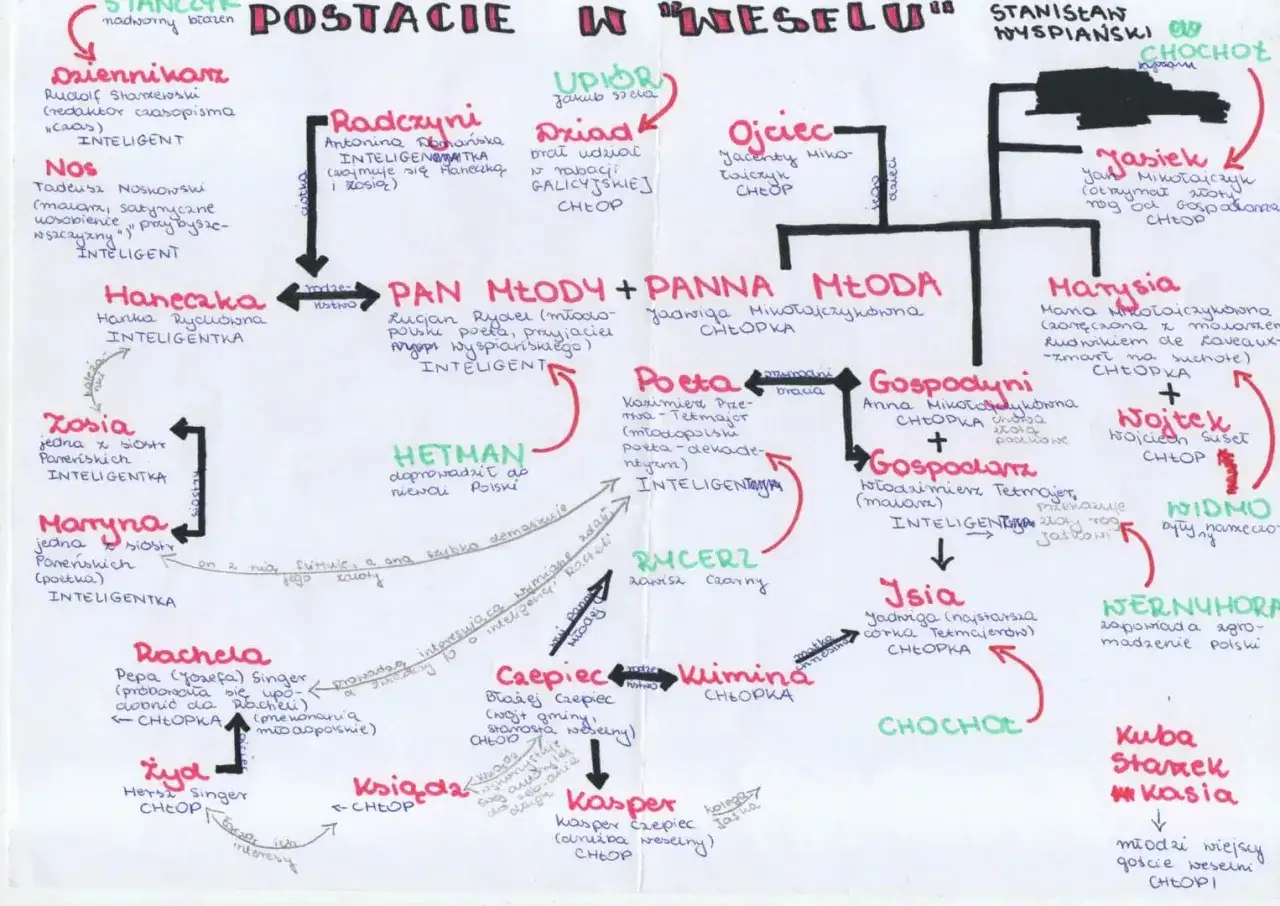 STAŃCZYK
nadworny błazen
POSTACIE W "WESELU"
STANISŁAW
WYSPIAŃSKI
CHOCHOŁ
Dziennikarz
Rudolf Starzewski
(redaktor czasopisma
"Czas)
INTELIGENT
Nos
Tadeusz Noskowski
(malarz, satyryczne
uosobienie "przybysze-
wszczyzny")
INTELIGENT
ciotka
Radczyni
Antonina Domańska
INTELIGENTKA
(zajmuje się Haneczką
i Zosią)
UPIÓR
Jakub Szela
Dziad
brał udział
w rabacji
GALICYJSKIEJ
CHŁOP
Ojciec
Jacenty Miko-
łajczyk
CHŁOP
jego
dzieci
Jasiek
Jan Mikołajczyk
(otrzymał złoty
róg od Gospodarza
CHŁOP
Haneczka
Hanka Rydlówna
INTELIGENTKA
rodze-
ństwo
PAN MŁODY + PANNA MŁODA
Lucjan Rydel (młodo-
polski poeta, przyjaciel
Wyspiańskiego)
INTELIGENT
Jadwiga Mikołajczykówna
CHŁOPKA
Marysia
Maria Mikołajczykówna
(zaręczona z malarzem
Ludwikiem de Laveaux-
-zmarł na suchoty)
CHŁOPKA
+
Wojtek
Wojciech Suseł
CHŁOP
WIDMO
były narzeczo-
ny
koleżan-
ki
Zosia
jedna z sióstr
Pareńskich
INTELIGENTKA
siostry
Maryna
jedna z sióstr
Pareńskich
(poetka)
INTELIGENTKA
HETMAN
doprowadził do
niewoli Polski
Poeta
Kazimierz Prze-
rwa-Tetmajer
(młodopolski
poeta-dekade-
ntyzm)
INTELIGENT
przyrodni
bracia
Gospodyni
Anna Mikołajczykówna
CHŁOPKA
chowa
złotą
podkowę
+
Gospodarz
Włodzimierz Tetmajer
(malarz)
INTELIGENT
przekazuje
złoty róg
Jaśkowi
WERNYHORA
zapowiada zgro-
madzenie Polski
on z nią flirtuje, a ona szybko demaskuje
jego zaloty
RYCERZ
Zawisz Czarny
Isia
Jadwiga (najstarsza
córka Tetmajerów)
CHŁOPKA
CHOCHOŁ
Rachela
Pepa (Józefa) Singer
(próbowała się upo-
dobnić do Racheli)
CHŁOPKA (przekonania
młodopolskie)
prowadzą interesującą wymianę zdań
a świadczy to o inteligencji Racheli
Czepiec
Błażej Czepiec
(wójt gminy,
starosta weselny)
CHŁOP
rodze-
ństwo
Klimina
CHŁOPKA
matka
chrzestna
Żyd
Hersz Singer
CHŁOP
ojciec
łączą ich
interesy
Ksiądz
CHŁOP
Kasper
Kasper Czepiec
(drużba weselny)
CHŁOP
kolega
Jaśka
Kuba
Staszek
Kasia
młodzi wiejscy
goście weselni
CHŁOPI